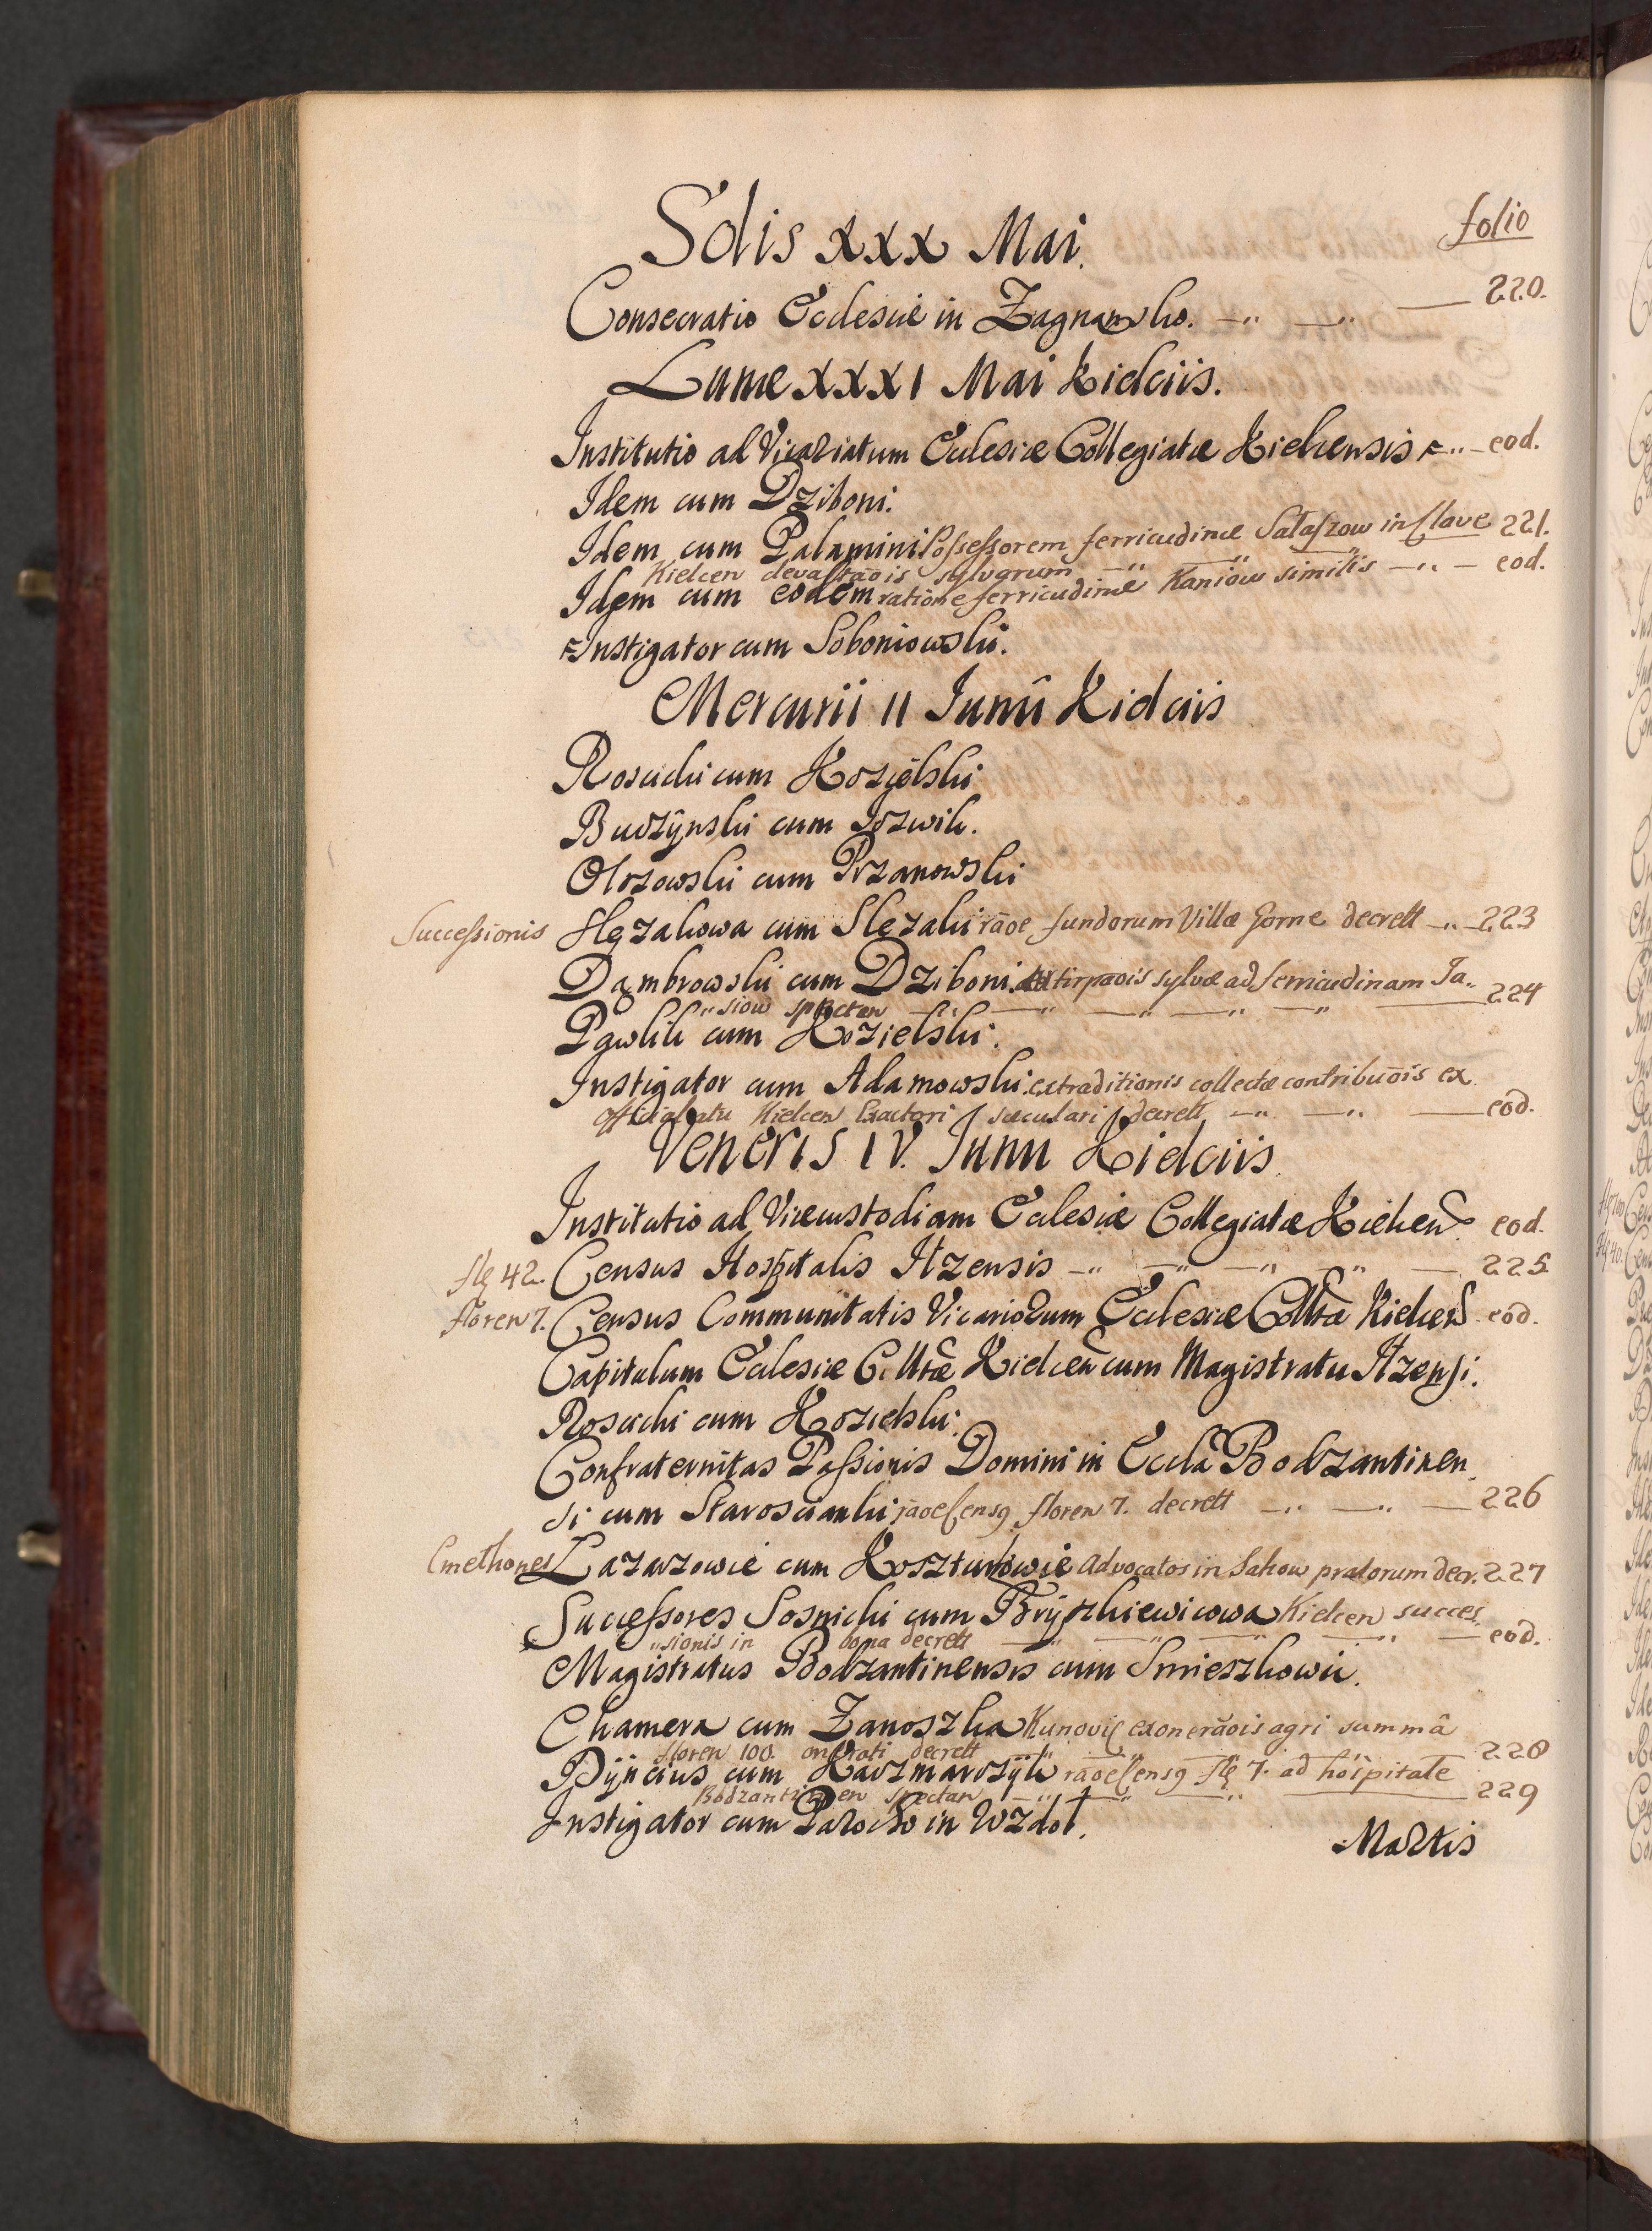 folio
Solis XXX Mai.
Consecratio Ecclesiæ in Zagnansko. 220.
Lunæ XXXI Mai Kielciis.
Institutio ad Vicariatum Ecclesiæ Collegiatæ Kielcensis eod.
Idem cum Dziboni.
Idem cum Palamini Possessorem ferricudinæ Sataszow in Clave 221.
Kielcen devastaōis sylvarum
Idem cum eodem ratione ferricudinæ Kaniow similis eod.
Instigator cum Soboniowski.
Mercurii II Junii Kielciis
Rosucki cum Kozielski
Buczÿnski cum Jozwik.
Olszowski cum Przanowski
Successionis Slęzakowa cum Slęzaki rāoe fundorum Villæ Gorne decrett 223
Dąmbrowski cum Dziboni extirpaōis sylvæ ad ferricudinam Ja„
„siow spectan 224
Pawlik cum Kozielski.
Instigator cum Adamowski extraditionis collectæ contribuōis ex
officialatu Kielcen Exactori sæculari decrett eod.
Veneris IV. Junii Kielciis
Institutio ad Vicecustodiam Ecclesiæ Collegiatæ Kielcen eod.
flę 42. Census Hospitalis Ilzensis 225
floren 7. Census Communitatis Vicariorum Ecclesiæ Colltæ Kielcen eod.
Capitulum Ecclesiæ Colltæ Kielcen cum Magistratu Ilzensi.
Rosucki cum Kozielski.
Confraternitas Passionis Domini in Eccla Bodzantinen
si cum Staroscianki rāoe Censg floren 7. decrett 226
Cmethones Lazarzowie cum Koszturkowie Advocatos in Sakow pratorum decr. 227
Successores Sosnicki cum Brÿszkiewicowa Kielcen succes
„sionis in bona decrett eod.
Magistratus Bodzantinensis cum Smieszkowic.
Chamera cum Zanoszka Kunovic exonerāois agri summâ
floren 100. onerati decrett 228
Dÿncius cum Kaczmarczÿk rāoe Censg flę 7. ad hospitale
Bodzantinen spectan 229
Instigator cum Parocho in Wzdoł.
Martis